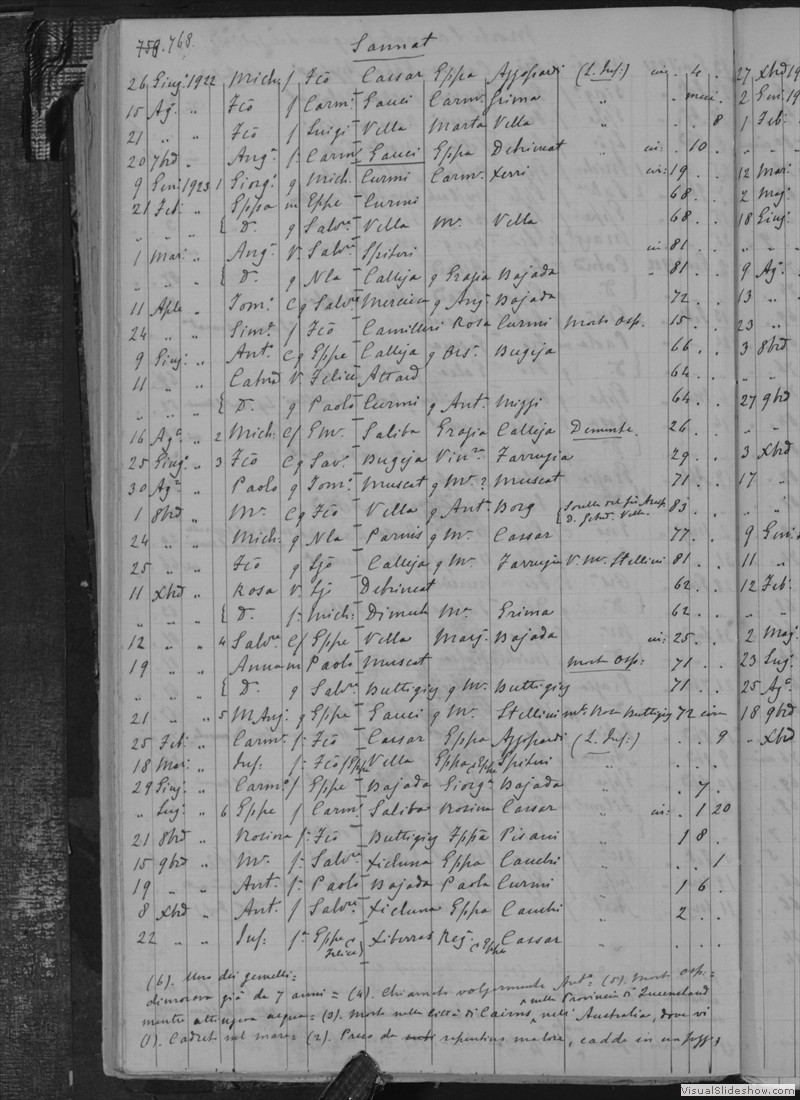 758.768.
Sannat
26 Giug: 1922 Mich: f Fcõ Caesar Eppa Appapardi (L. Inf:) cir. . 4 . 27 Xbrẽ 19
15 Ag: „ Fcõ f Carm: Gauci Carm: Grima „ . mesi . 2 Gen: 19
21 „ „ Fcõ f Luigi Vella Marta Vella „ . . 8 1 Feb:
20 7brẽ „ Ang: f: Carm: Gauci Eppa Debrincat „ cir: . 10 . „ „
9 Gen: 1923 1 Giorg: g Mich: Curmi Carm: Xerri cir: 19 . . 12 Mar:
21 Feb: „ Eppa m Eppe Curmi 68 . . 2 Mag:
„ „ „ { D. g Salv: Vella Mª Vella 68 . . 18 Giug:
1 Mar: „ Ang: V. Salv: Spiteri cir 81 . . „ „
„ „ „ { D. g Nla Calleja g Grazia Bajada „ 81 . . 9 Ag:
11 Aple „ Tom: Cg Salv: Mercieca g Ang: Bajada 72 . . 13 „
24 „ „ Gim: f Fcõ Camilleri Rosa Curmi Morto Osp. 15 . . 23 „
9 Giug: „ Ant: Cg Eppe Calleja g Ors: Bugeja 66 . . 3 8brẽ
11 „ „ Catnã V. Felice Attard 64 . . „ „
„ „ „ { D. g Paolo Curmi g Ant: Mizzi 64 . . 27 9brẽ
16 Agº „ 2 Mich: Cf Emª Saliba Grazia Calleja Demente. 26 . . „ „
25 Giugº „ 3 Fcõ Cg Savº Bugeja Vinª Farrugia 29 . . 3 Xbrẽ
30 Agº „ Paolo g Tomº Muscat g Mª ? Muscat 71 . . 17 „
1 8brẽ „ Mª Cg Fcõ Vella g Ant: Borg { Sorella del fu Arcip. D. Vella. 83 . . „ „
24 „ „ Mich: g Nla Parnis g Mª Cassar 77 . . 9 Gen:
25 „ „ Fcõ g Gjõ Calleja g Mª Farrugia V. Mª Stellini 81 . . 11 „
11 Xbrẽ „ Rosa V. Gjõ Debrincat 62 . . 12 Feb:
„ „ „ { D. f: Mich: Dimech Mª Grima 62 . . „ „
12 „ „ 4 Salvª Cf Eppe Vella Marj: Bajada cir: 25 . . 2 Mag:
19 „ „ Anna m Paolo Muscat Morta Osp: 71 . . 23 Lug:
„ „ „ { D. g Salvª Buttigieg g Mª Buttigieg 71 . . 25 Agº
21 „ „ 5 M Ang: g Eppe Gauci g Mª Stellini Mª Rosa Buttigieg 72 circa 18 9brẽ
25 Feb: „ Carmª f: Fcõ Caesar Eppa Appapardi (L. Inf:) . . 9 „ Xbrẽ
18 Mar: „ Inf: f: Fcõ (Eppe Vella Eppa (Eppe Spiteri „ . . .
29 Giug: „ Carmº f Eppe Bajada Giorgª Bajada „ . 7 .
„ Lug: „ 6 Eppe f Carm: Saliba Rosina Cassar „ cir: . 1 20
21 8brẽ „ Rosina f: Fcõ Buttigieg Fppã Pisani „ 1 8 .
15 9brẽ „ Mª f: Salvº Xicluna Eppa Cauchi „ . . 1
19 „ „ Antª f: Paolo Bajada Paola Curmi „ 1 6 .
8 Xbrẽ „ Ant: f Salvº Xicluna Eppa Cauchi „ 2 . .
22 „ „ Inf: fª Eppe (Felice) Xiberras Reg: (Eppe Cassar „ . . .
(6). Uno dei gemelli =
dimorava già da 7 anni = (4). Chiamato volgarmente Antª (5). Morta Osp: =
mentre attingeva acqua = (3). Morto nella Città di Cairns, nella Provincia di Queensland nell' Australia, dove vi
(1). Cadde nel mare = (2). Preso da repentino malore, cadde in un pozzo
VisualSlideshow.com